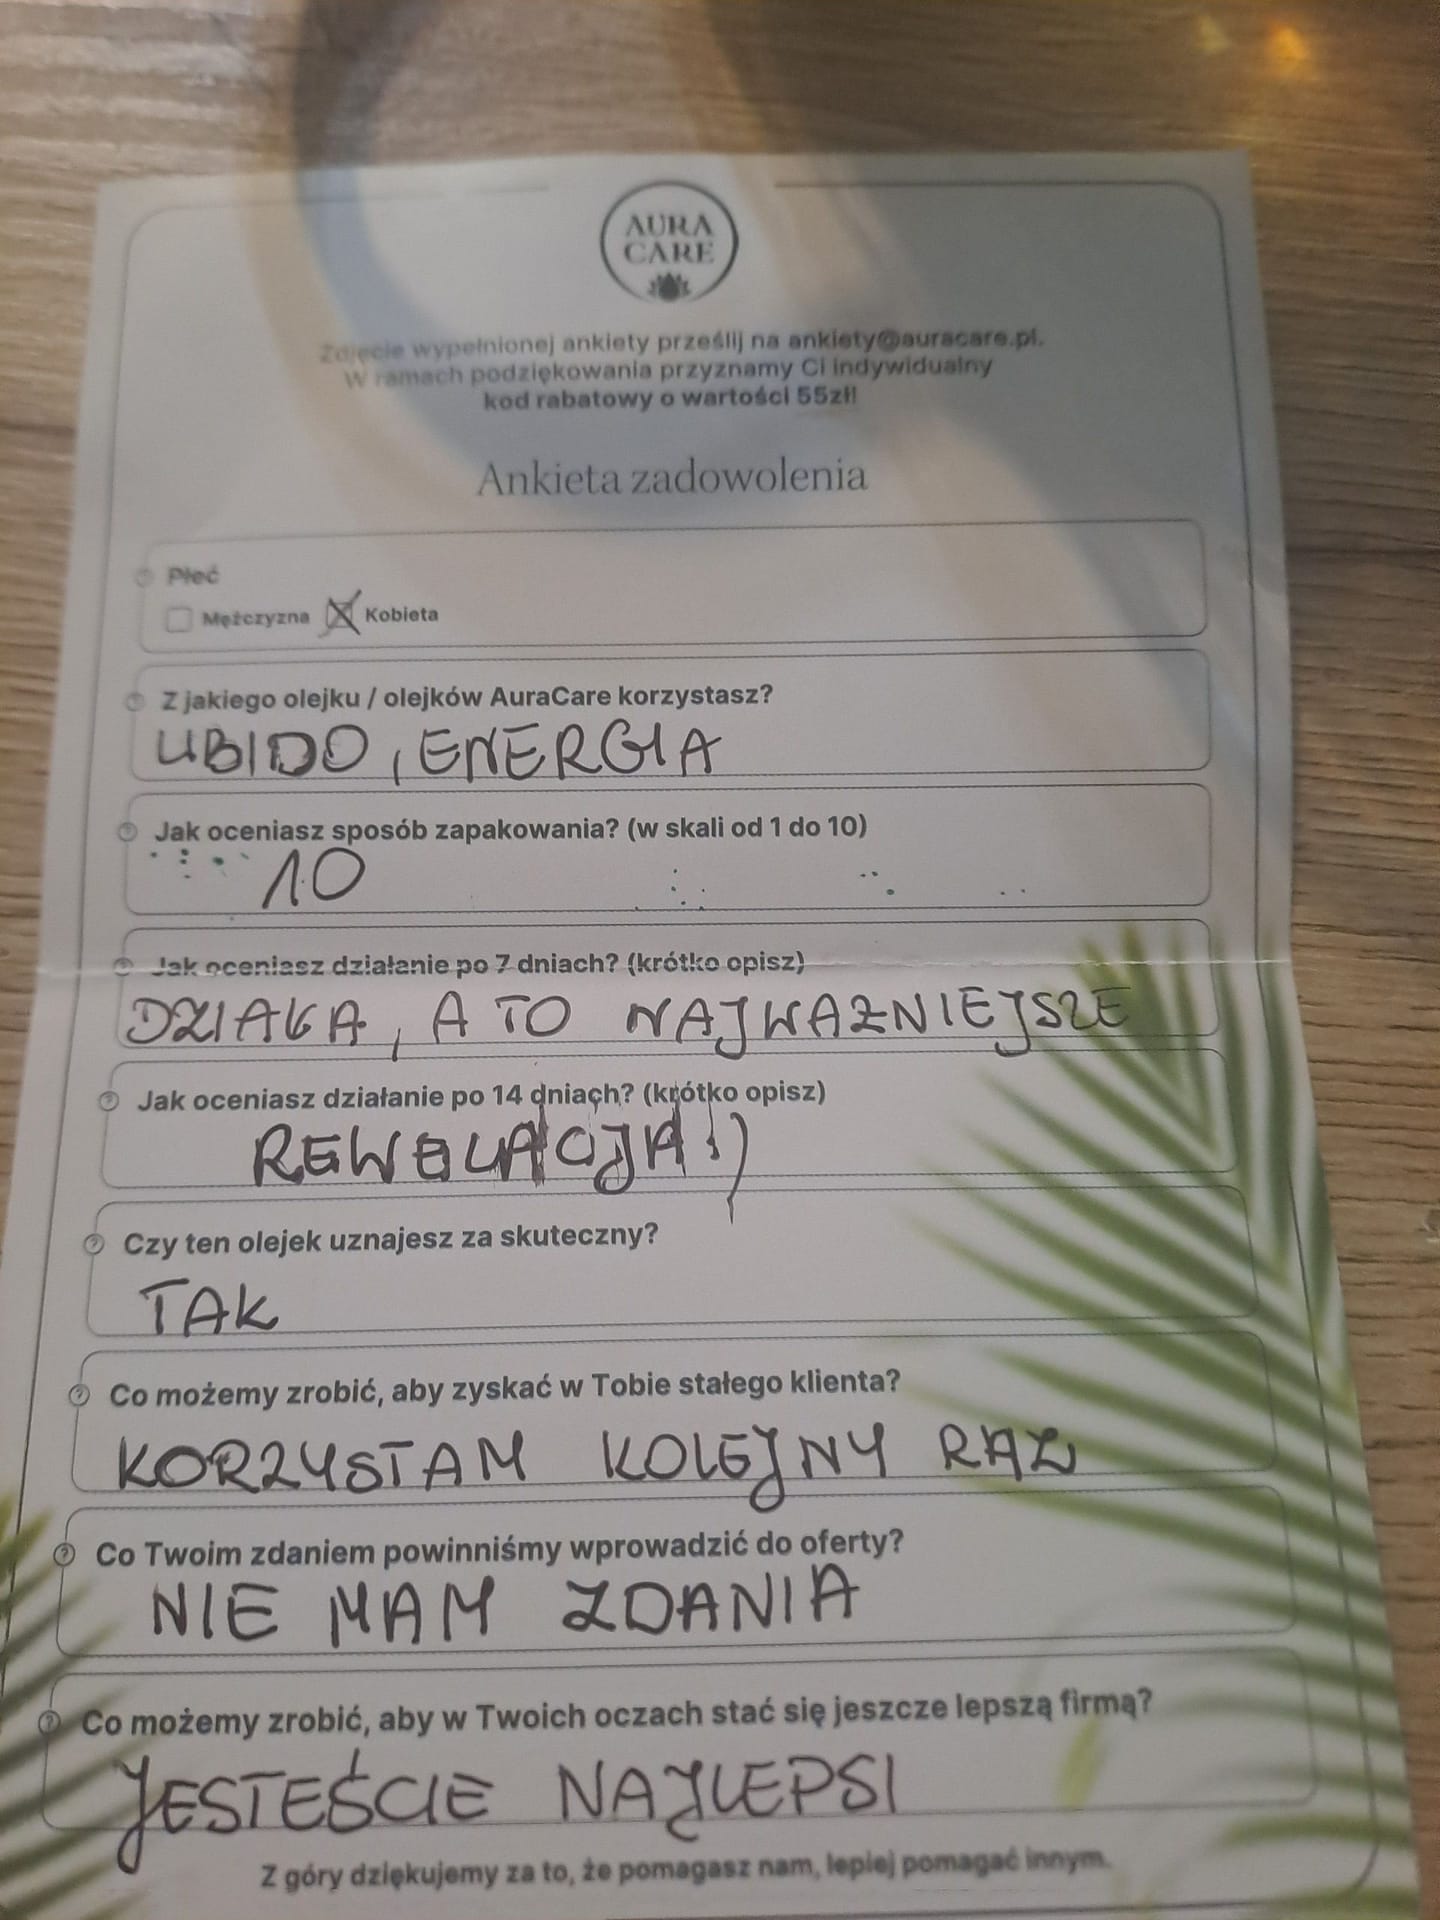 AURA
CARE
Zdjęcie wypełnionej ankiety prześlij na ankiety@auracare.pl.
W ramach podziękowania przyznamy Ci indywidualny
kod rabatowy o wartości 55zł!
Ankieta zadowolenia
Płeć
Mężczyzna Kobieta
Z jakiego olejku / olejków AuraCare korzystasz?
LIBIDO, ENERGIA
Jak oceniasz sposób zapakowania? (w skali od 1 do 10)
10
Jak oceniasz działanie po 7 dniach? (krótko opisz)
DZIAŁA, A TO NAJWAŻNIEJSZE
Jak oceniasz działanie po 14 dniach? (krótko opisz)
REWELACJA :)
Czy ten olejek uznajesz za skuteczny?
TAK
Co możemy zrobić, aby zyskać w Tobie stałego klienta?
KORZYSTAM KOLEJNY RAZ
Co Twoim zdaniem powinniśmy wprowadzić do oferty?
NIE MAM ZDANIA
Co możemy zrobić, aby w Twoich oczach stać się jeszcze lepszą firmą?
JESTEŚCIE NAJLEPSI
Z góry dziękujemy za to, że pomagasz nam, lepiej pomagać innym.